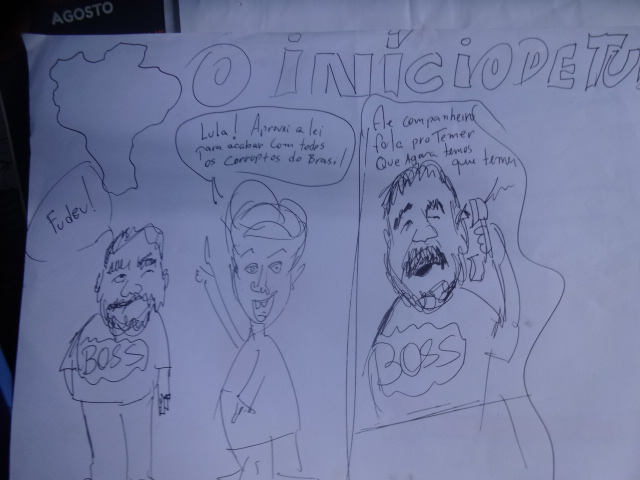 AGOSTO
O INÍCIO DE TU
Fudeu!
Lula! Aprovei a lei
para acabar com todos
os corruptos do Brasil!
BOSS
companheiro
fala pro Temer
Que Agora temos
que temer
BOSS